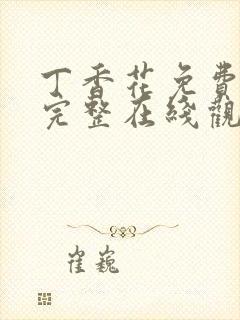 丁香花免費
完整在綫觀
崔巍